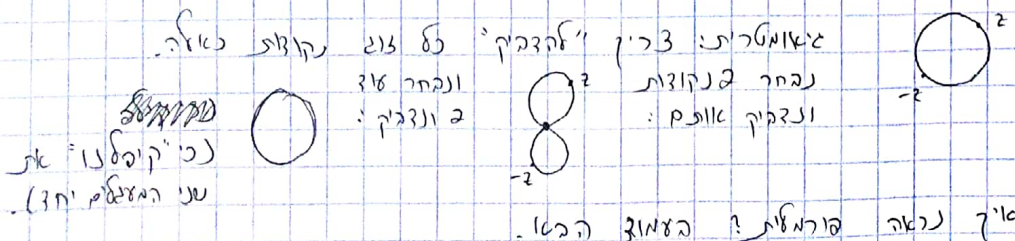 גיאומטרית: צריך "להדביק" כל זוג נקודות כאלה.
z
-z
נבחר 2 נקודות
ונדביק אותם:
z
-z
ונבחר עוד
2 ונדביק:
(כי "קיפלנו" את
שני המעגלים יחד).
איך נראה פורמלית? בעמוד הבא.